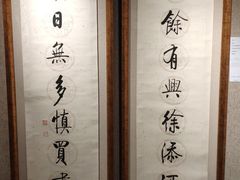 餘有興徐添酒
日無多慎買書